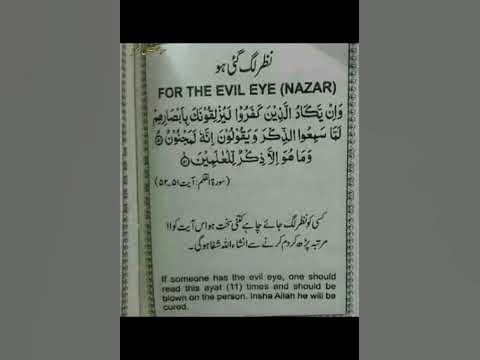 نظر لگ گئی ہو
FOR THE EVIL EYE (NAZAR)
وَاِنْ يَّكَادُ الَّذِيْنَ كَفَرُوْا لَيُزْلِقُوْنَكَ بِاَبْصَارِهِمْ
لَمَّا سَمِعُوا الذِّكْرَ وَيَقُوْلُوْنَ اِنَّهٗ لَمَجْنُوْنٌ ۝
وَمَا هُوَ اِلَّا ذِكْرٌ لِّلْعٰلَمِيْنَ ۝
(سورۃ القلم: آیت ۵۱ـ۵۲)
کسی کو نظر لگ جائے چاہے کتنی سخت ہو اس آیت کو ۱۱
مرتبہ پڑھ کر دم کرنے سے انشاء اللہ شفا ہو گی۔
If someone has the evil eye, one should
read this ayat (11) times and should be
blown on the person. Insha Allah he will be
cured.